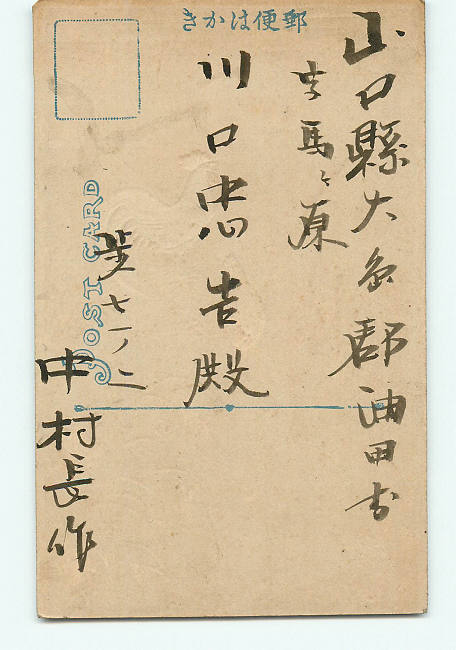 郵便はかき
山口縣大島郡油田村
字馬ヶ原
川口忠吉殿
歩七一ノ二
中村長作
POST CARD